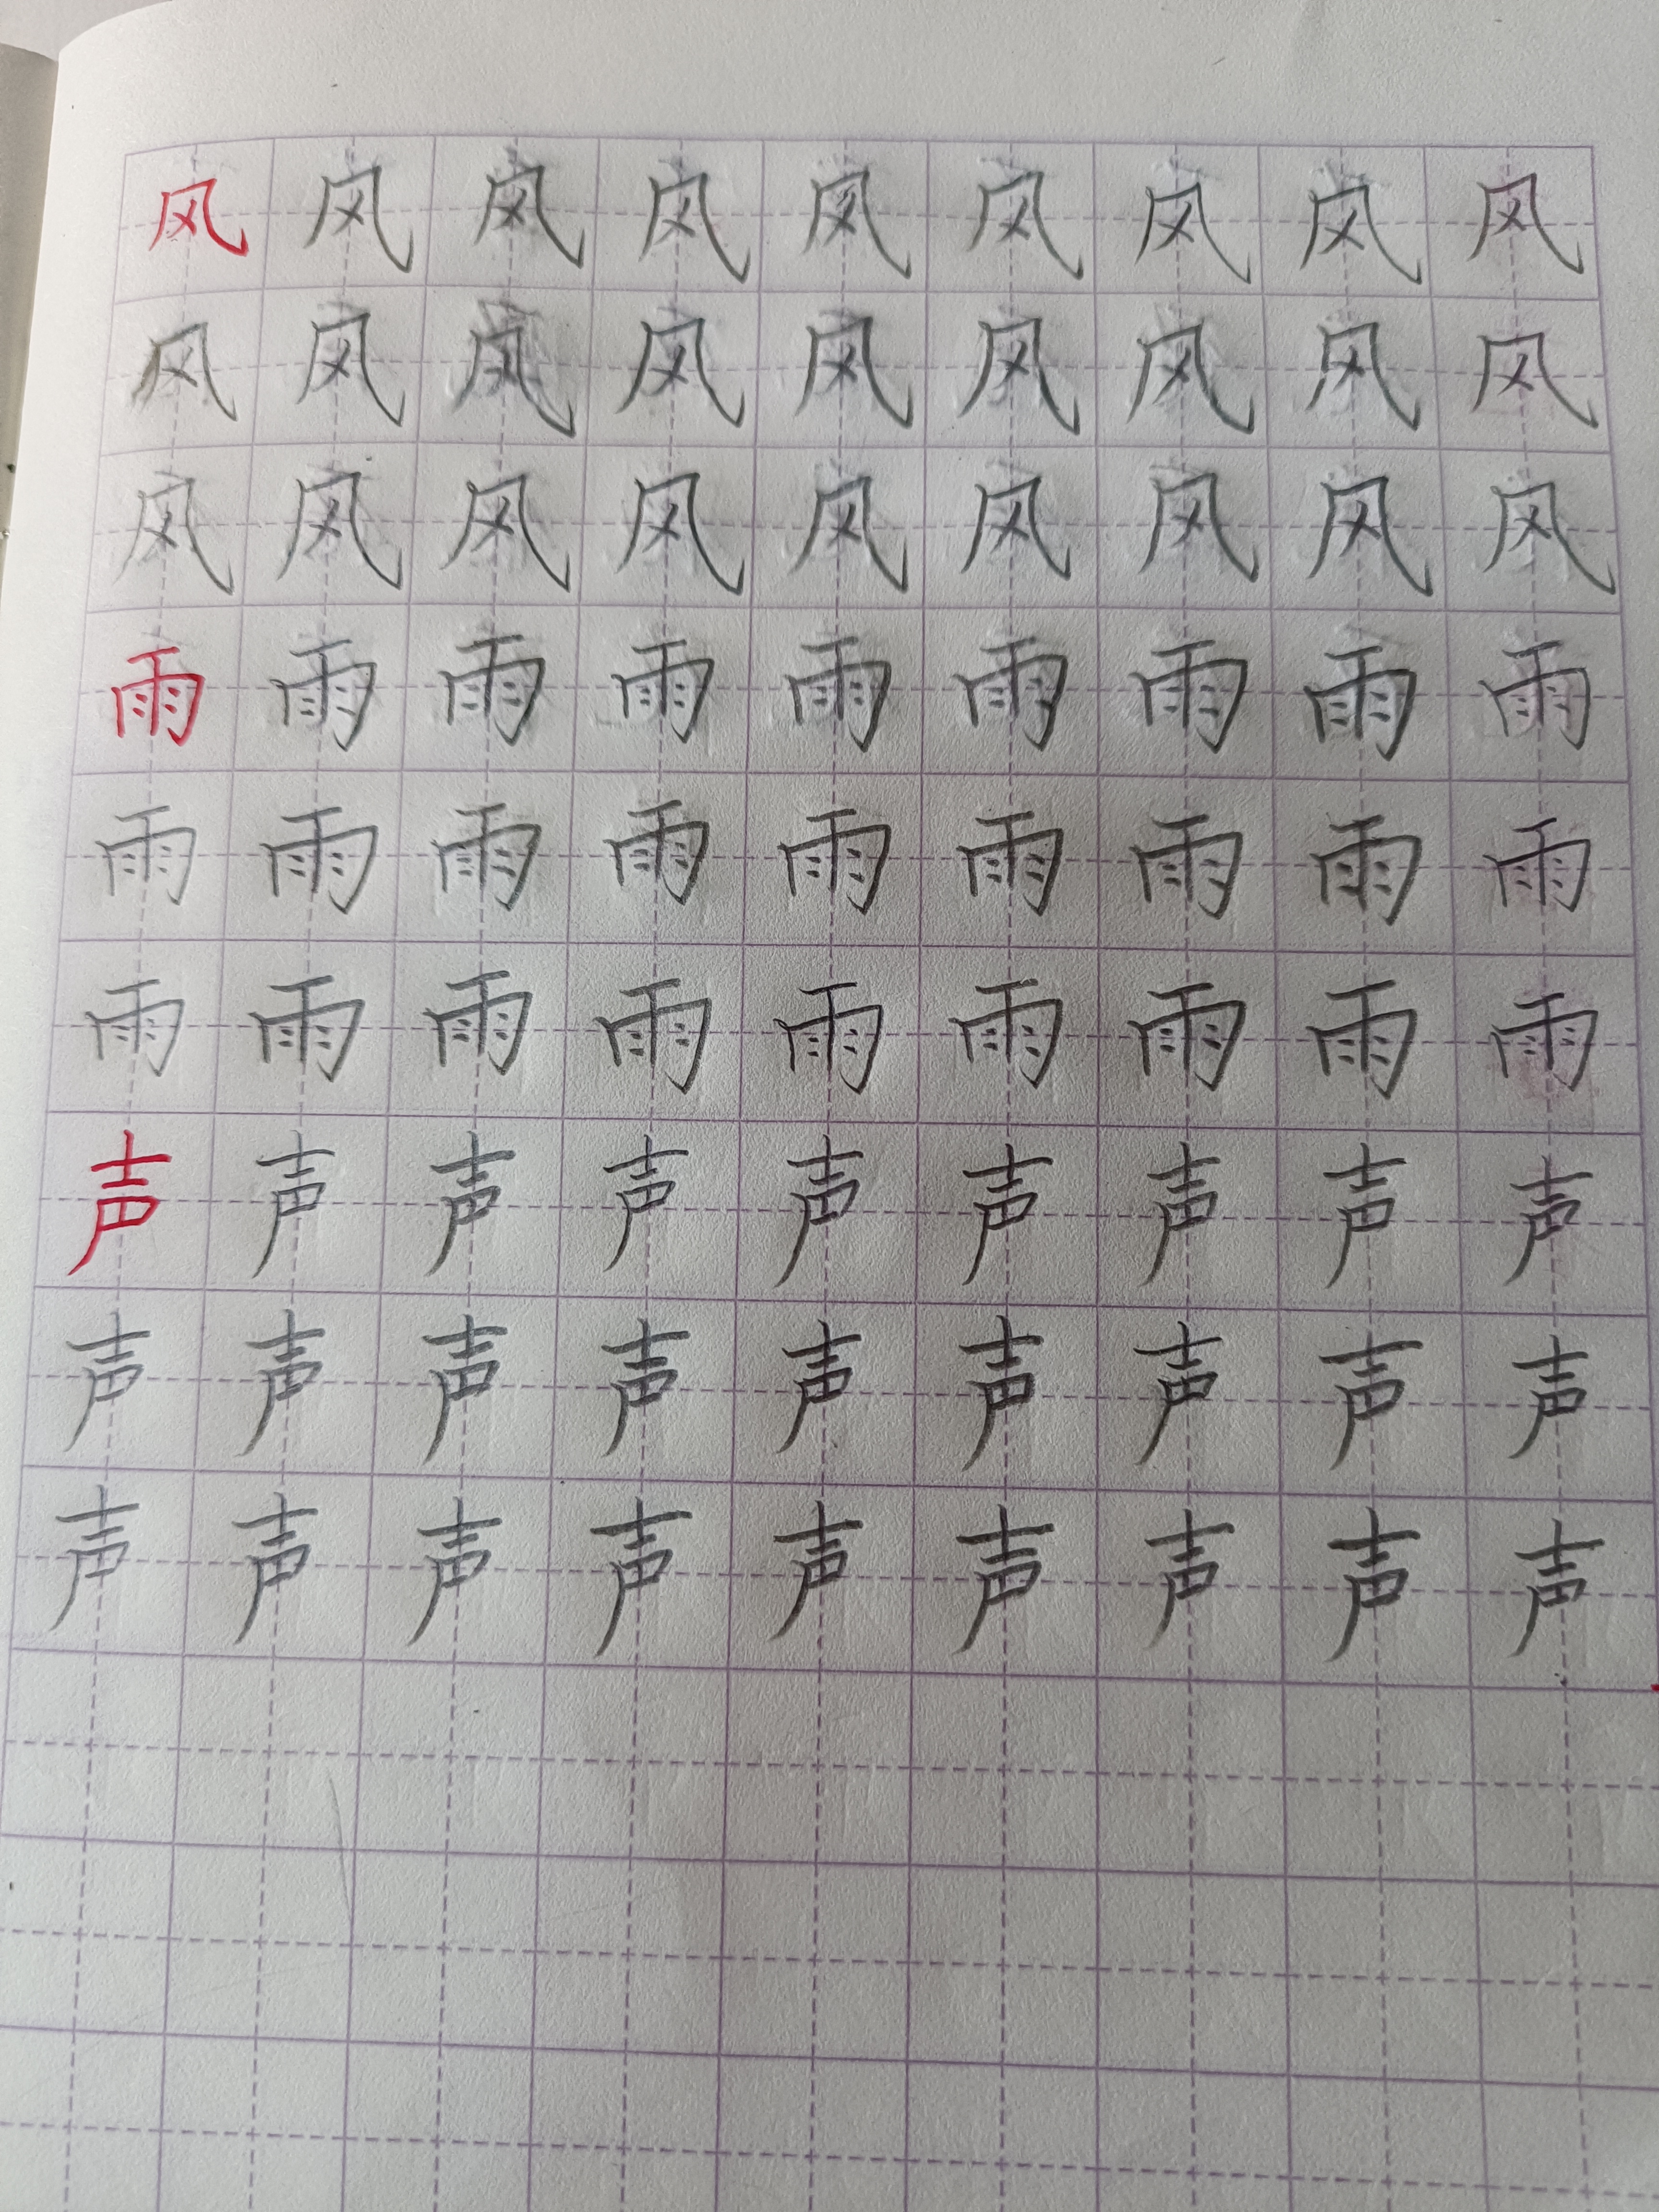 风风风风风风风风风
风风风风风风风风风
风风风风风风风风风
雨雨雨雨雨雨雨雨雨
雨雨雨雨雨雨雨雨雨
雨雨雨雨雨雨雨雨雨
声声声声声声声声声
声声声声声声声声声
声声声声声声声声声